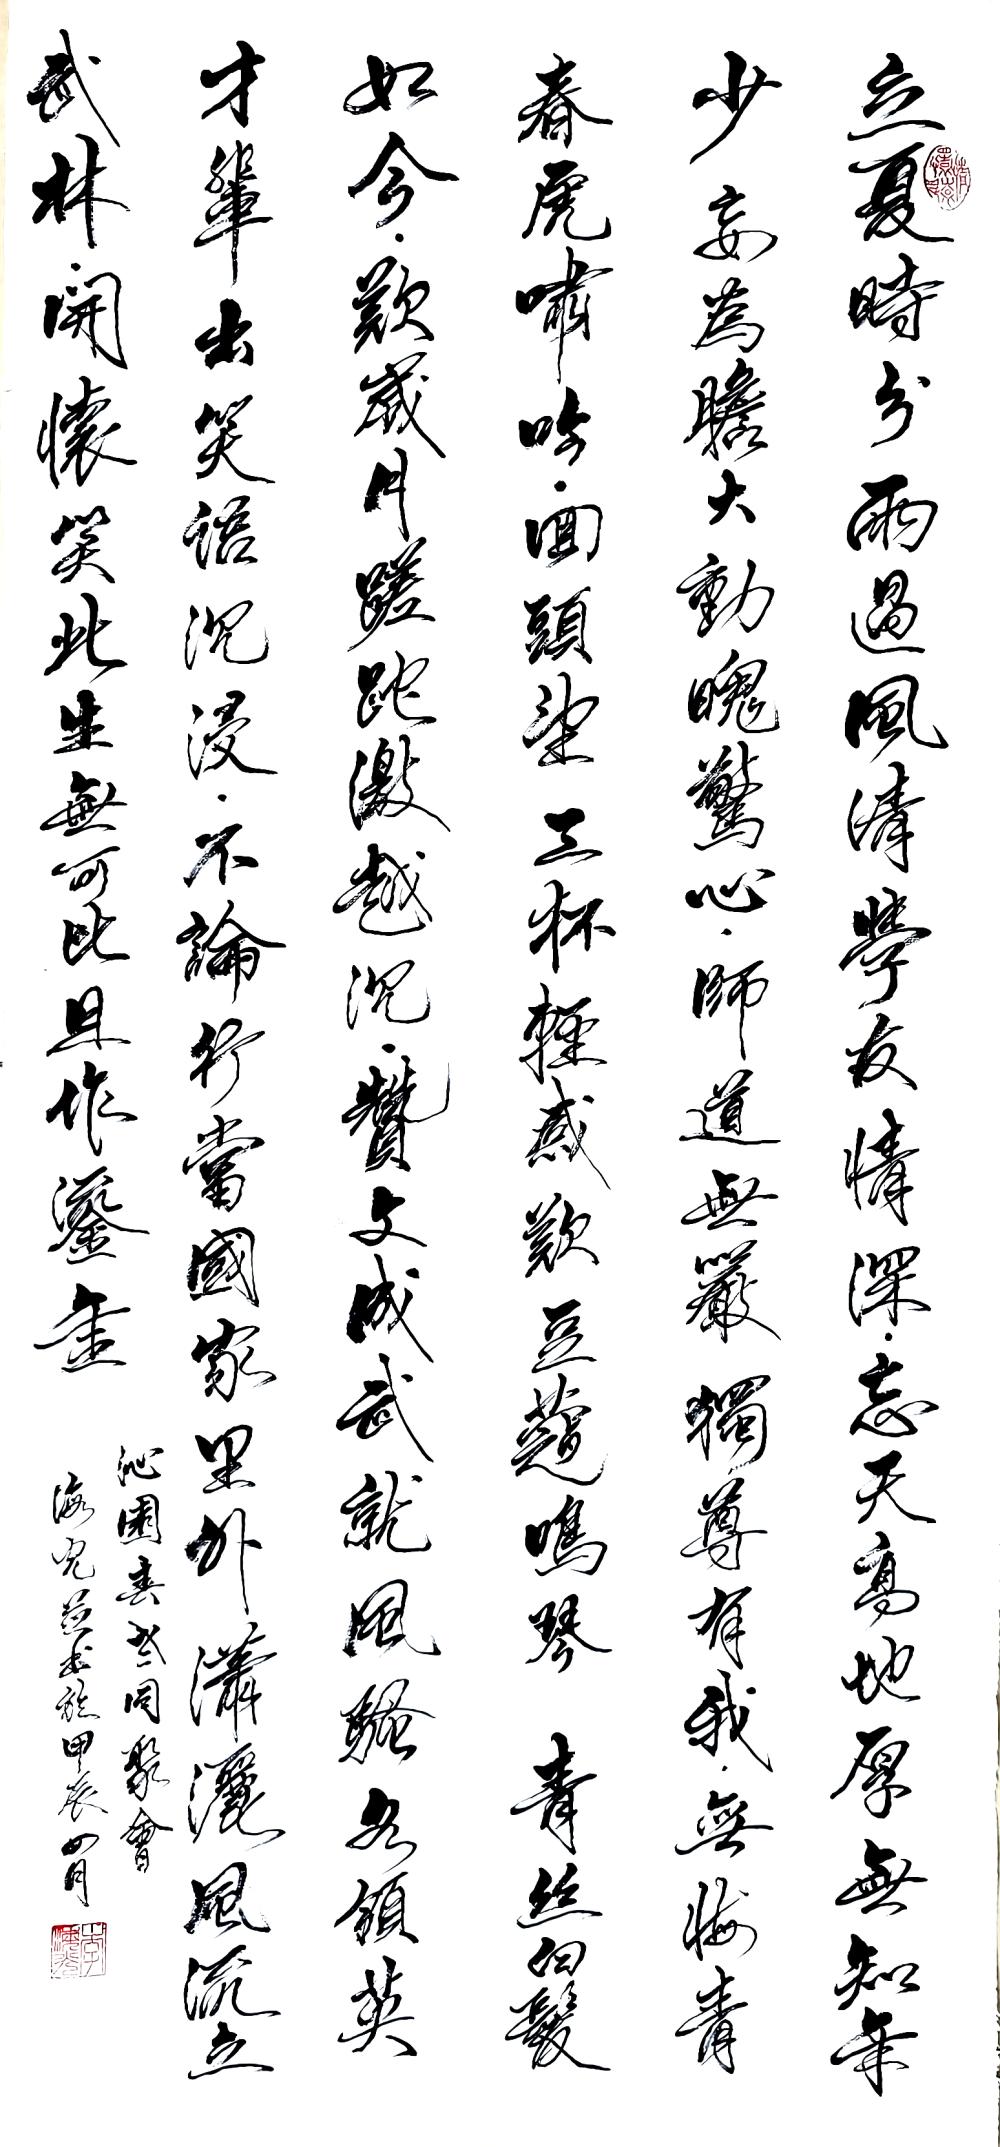 立夏時分雨過風清學友情深·忘天高地厚無知年
少妄為膽大動魄驚心·師道無嚴獨尊有我·無悔青
春虎嘯吟·回頭望三杯輕感歎豆蔻鳴琴 青絲白髮
如今·歎歲月蹉跎激越沉·贊文成武就風騷各領英
才輩出笑語沉浸·不論行當國家里外瀟灑風流立
武林·開懷笑此生無可比且作鎏金
沁園春 同聚會
海 書於甲辰四月